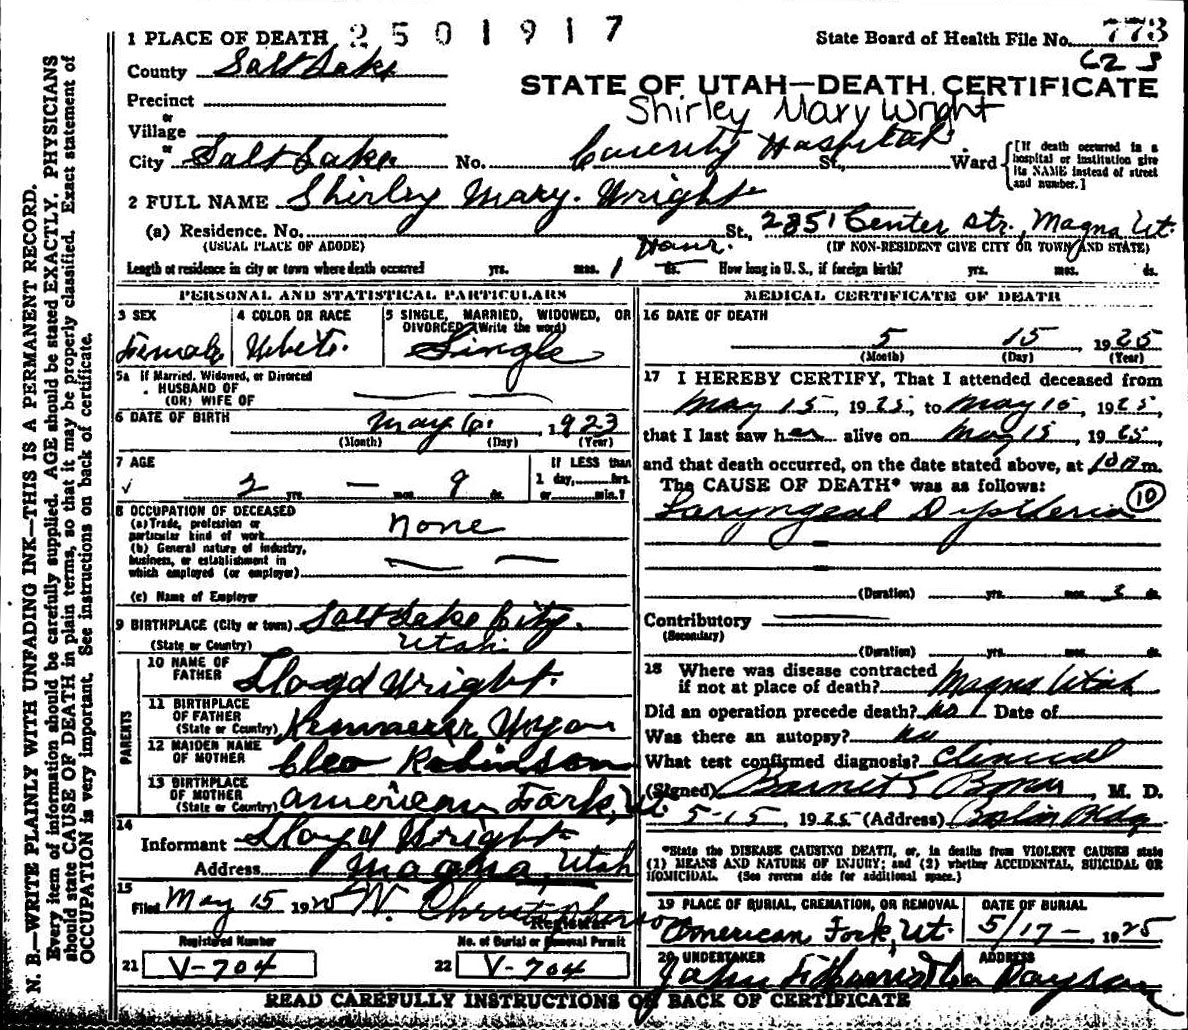 1 PLACE OF DEATH 2501917 State Board of Health File No. 773
County Salt Lake C2 3
STATE OF UTAH—DEATH CERTIFICATE
Precinct
or
Village
Shirley Mary Wright
or
City Salt Lake No. County Hospital St., Ward
[If death occurred in a hospital or institution give its NAME instead of street and number.]
2 FULL NAME Shirley Mary Wright
(a) Residence. No. St., 2851 Center Str., Magna Ut.
(USUAL PLACE OF ABODE) (IF NON-RESIDENT GIVE CITY OR TOWN AND STATE)
Length of residence in city or town where death occurred yrs. mos. 1 Hour. ds. How long in U. S., if foreign birth? yrs. mos. ds.
PERSONAL AND STATISTICAL PARTICULARS
3 SEX
Female
4 COLOR OR RACE
White.
5 SINGLE, MARRIED, WIDOWED, OR
DIVORCED (Write the word)
Single
5a If Married, Widowed, or Divorced
HUSBAND OF
(OR) WIFE OF
6 DATE OF BIRTH May 6. 1923
(Month) (Day) (Year)
7 AGE
2 yrs. — mos. 9 ds.
If LESS than
1 day, hrs.
or min.?
8 OCCUPATION OF DECEASED
(a) Trade, profession or
particular kind of work none
(b) General nature of industry,
business, or establishment in
which employed (or employer)
(c) Name of Employer
9 BIRTHPLACE (City or town) Salt Lake City.
(State or Country) Utah
PARENTS
10 NAME OF
FATHER Lloyd Wright.
11 BIRTHPLACE
OF FATHER
(State or Country) Kemmerer Wyom
12 MAIDEN NAME
OF MOTHER Cleo Robinson
13 BIRTHPLACE
OF MOTHER
(State or Country) American Fork, Ut
14
Informant Lloyd Wright
Address Magna, Utah
15
Filed May 15 1925 W. Christopherson
Registrar
Registered Number No. of Burial or Removal Permit
21 V-704 22 V-704
MEDICAL CERTIFICATE OF DEATH
16 DATE OF DEATH
5 15 1925
(Month) (Day) (Year)
17 I HEREBY CERTIFY, That I attended deceased from
May 15, 1925, to May 15, 1925,
that I last saw her alive on May 15, 1925,
and that death occurred, on the date stated above, at 10 m.
The CAUSE OF DEATH* was as follows:
Laryngeal Diptheria 10
(Duration) yrs. mos. 3 ds.
Contributory
(Secondary)
(Duration) yrs. mos. ds.
18 Where was disease contracted
if not at place of death? Magna Utah
Did an operation precede death? no Date of
Was there an autopsy? no
What test confirmed diagnosis? Clinical
(Signed) Barnet E Bonar, M. D.
5-15, 1925 (Address) Bldg
*State the DISEASE CAUSING DEATH, or, in deaths from VIOLENT CAUSES state
(1) MEANS AND NATURE OF INJURY; and (2) whether ACCIDENTAL, SUICIDAL OR
HOMICIDAL. (See reverse side for additional space.)
19 PLACE OF BURIAL, CREMATION, OR REMOVAL
American Fork, Ut.
DATE OF BURIAL
5/17- 1925
20 UNDERTAKER ADDRESS
READ CAREFULLY INSTRUCTIONS ON BACK OF CERTIFICATE
N. B.—WRITE PLAINLY WITH UNFADING INK—THIS IS A PERMANENT RECORD.
Every item of information should be carefully supplied. AGE should be stated EXACTLY. PHYSICIANS
should state CAUSE OF DEATH in plain terms, so that it may be properly classified. Exact statement of
OCCUPATION is very important. See instructions on back of certificate.